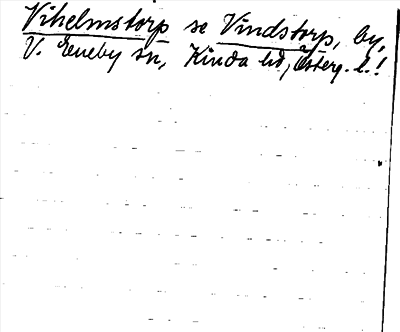 Vihelmstorp se Vindstorp, by,
V. Eneby sn, Kinda hd, Österg. l.!